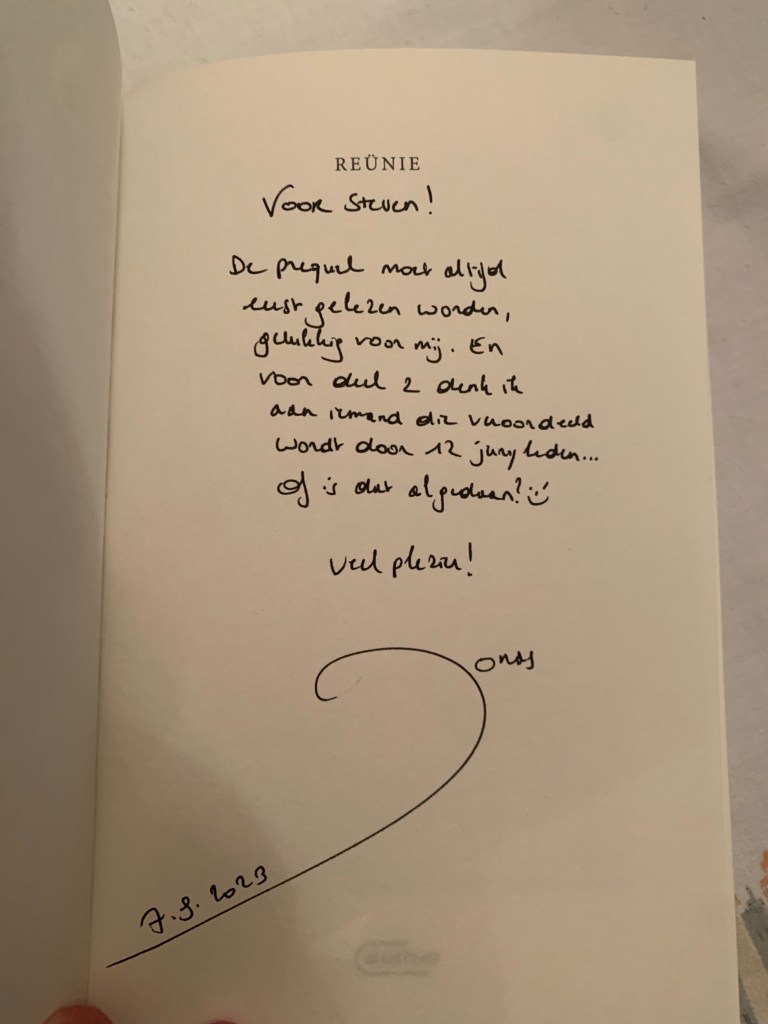 REÜNIE
Voor Steven!
De prequel moet altijd
eerst gelezen worden,
gelukkig voor mij. En
voor deel 2 denk ik
aan iemand die veroordeeld
wordt door 12 juryleden...
Of is dat al gedaan? :)
Veel plezier!
Jonas
7.9.2023